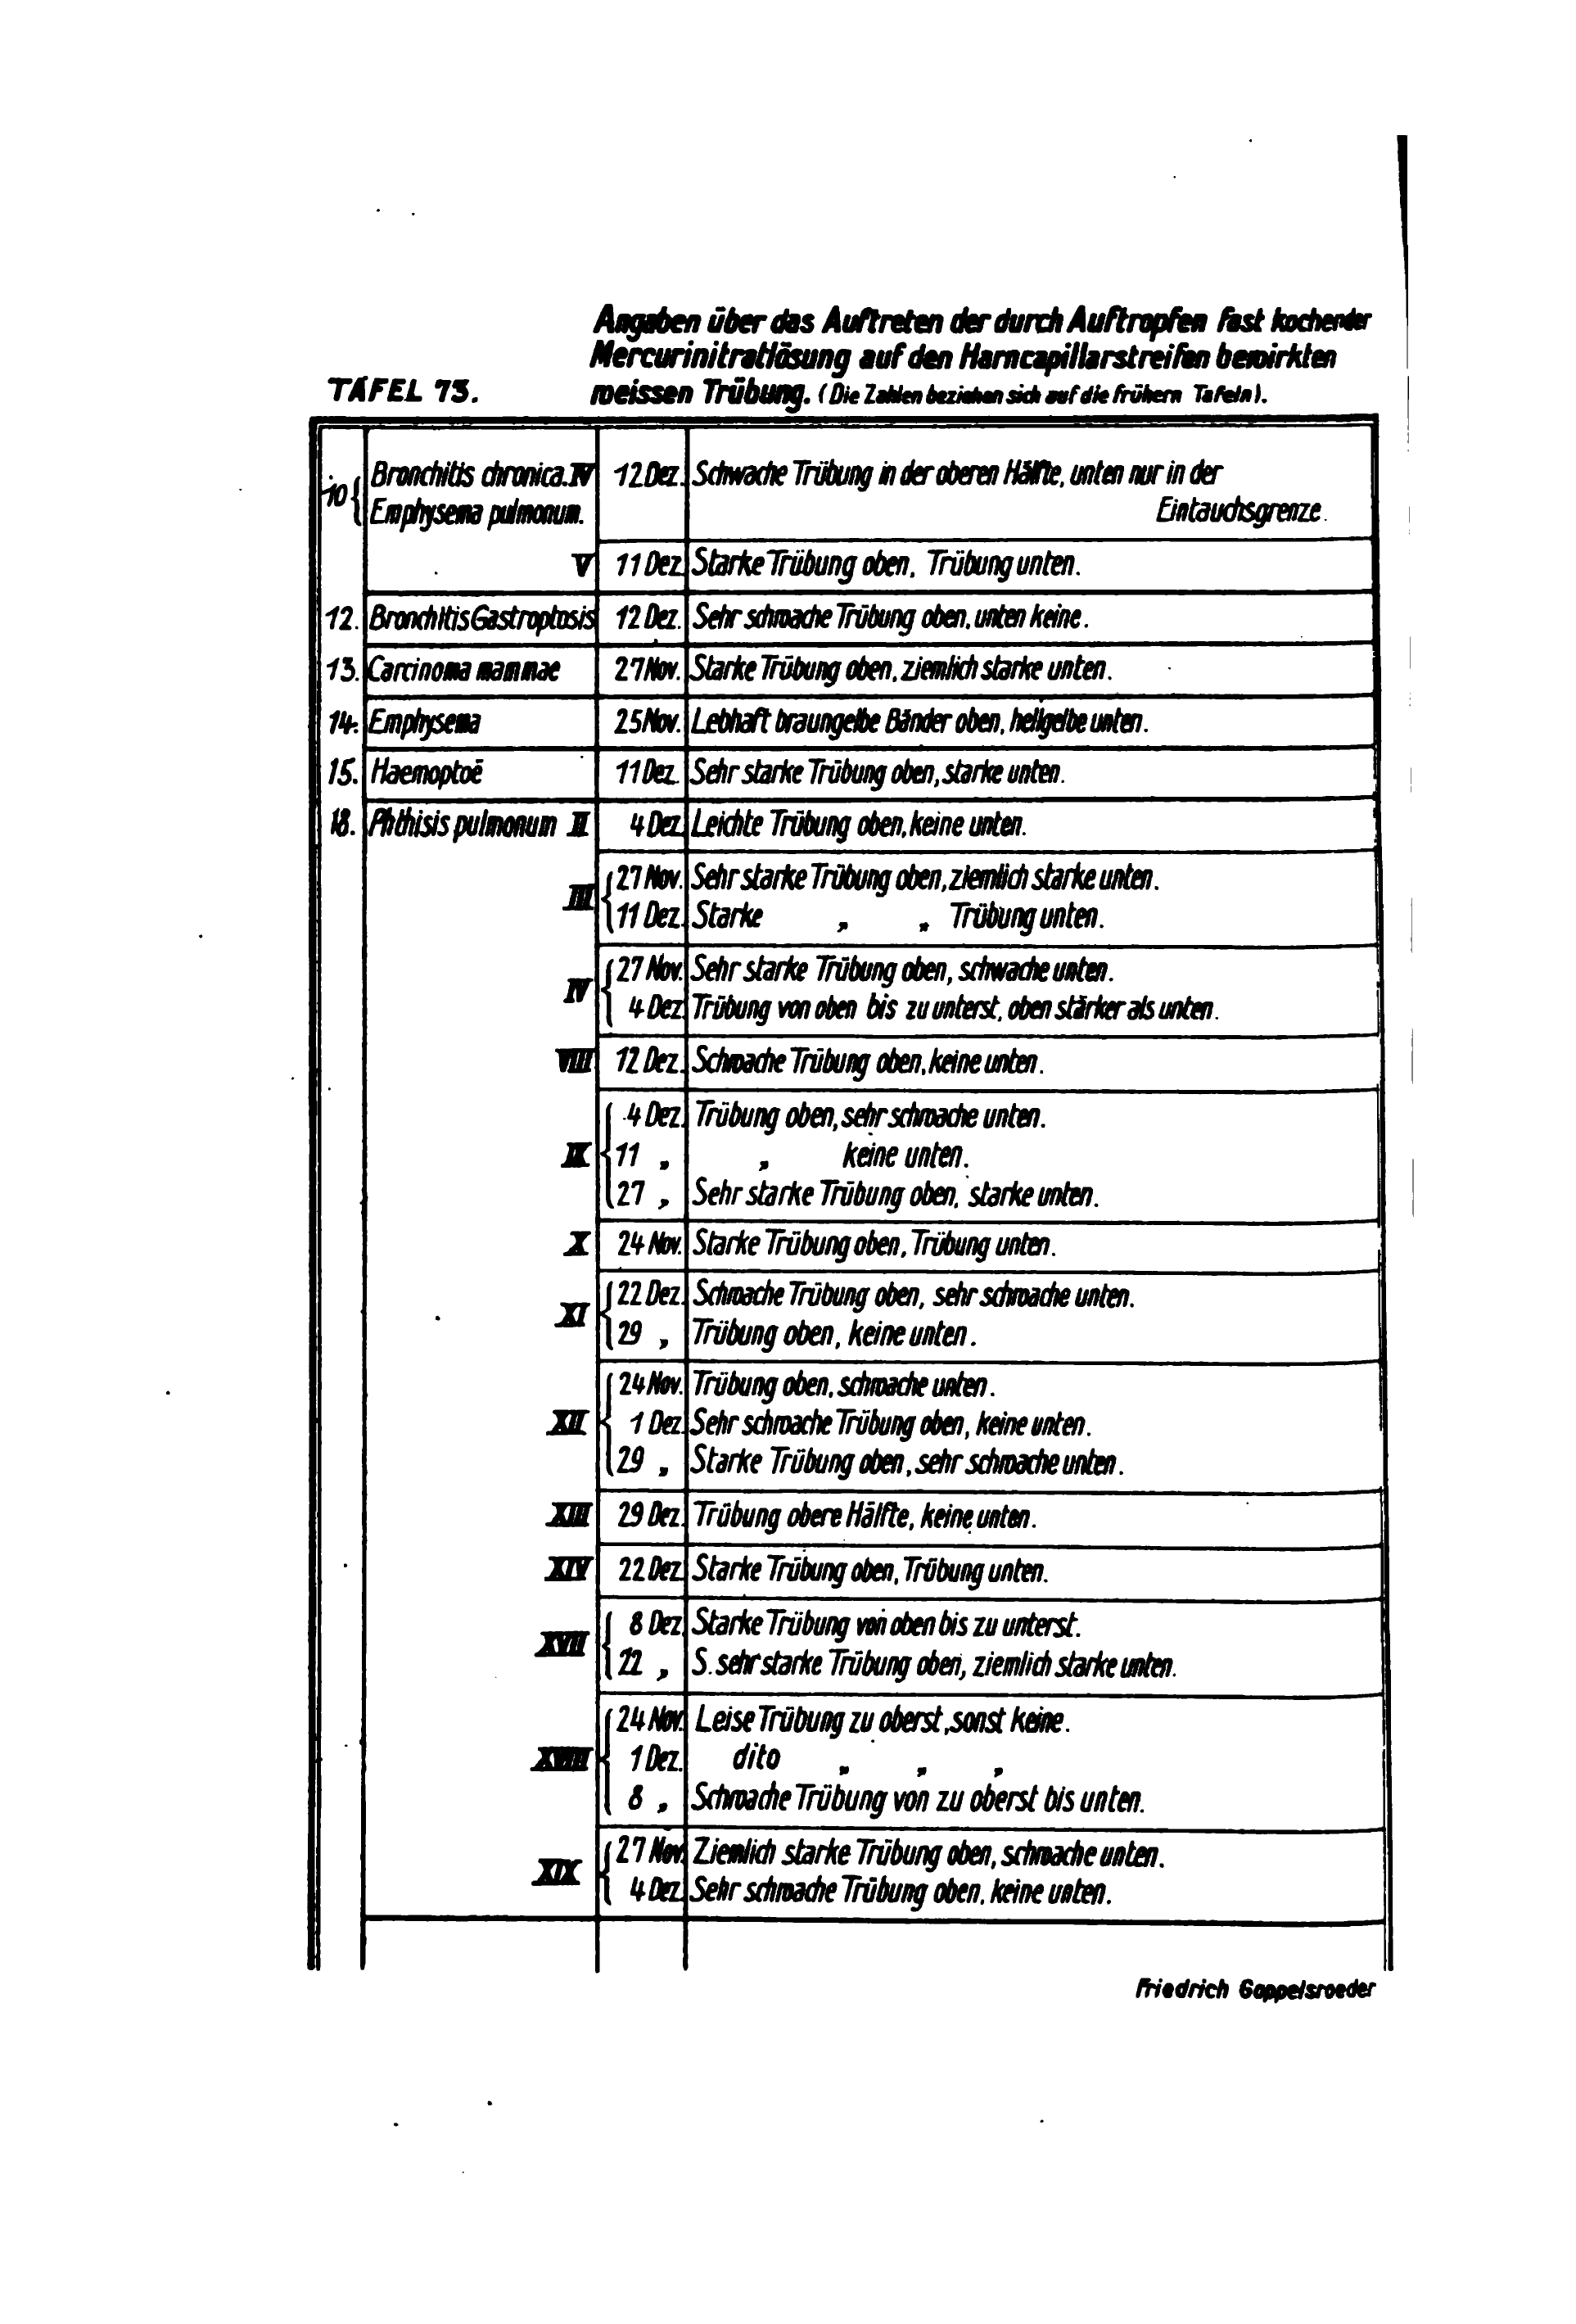 Angaben über das Auftreten der durch Auftropfen fast kochender
Mercurinitratlösung auf den Harncapillarstreifen bewirkten
TAFEL 73. weissen Trübung. (Die Zahlen beziehen sich auf die frühern Tafeln).
10 { Bronchitis chronica. IV 12 Dez. Schwache Trübung in der oberen Hälfte, unten nur in der
Emphysema pulmonum. Eintauchsgrenze.
V 11 Dez. Starke Trübung oben, Trübung unten.
12. Bronchitis Gastroptosis 12 Dez. Sehr schwache Trübung oben, unten keine.
13. Carcinoma mammae 27 Nov. Starke Trübung oben, ziemlich starke unten.
14. Emphysema 25 Nov. Lebhaft braungelbe Bänder oben, hellgelbe unten.
15. Haemoptoë 11 Dez. Sehr starke Trübung oben, starke unten.
18. Phthisis pulmonum II 4 Dez. Leichte Trübung oben, keine unten.
III { 27 Nov. Sehr starke Trübung oben, ziemlich starke unten.
11 Dez. Starke „ „ Trübung unten.
IV { 27 Nov. Sehr starke Trübung oben, schwache unten.
4 Dez. Trübung von oben bis zu unterst, oben stärker als unten.
VIII 12 Dez. Schwache Trübung oben, keine unten.
4 Dez. Trübung oben, sehr schwache unten.
IX { 11 „ „ keine unten.
27 „ Sehr starke Trübung oben, starke unten.
X 24 Nov. Starke Trübung oben, Trübung unten.
XI { 22 Dez. Schwache Trübung oben, sehr schwache unten.
29 „ Trübung oben, keine unten.
24 Nov. Trübung oben, schwache unten.
XII { 1 Dez. Sehr schwache Trübung oben, keine unten.
29 „ Starke Trübung oben, sehr schwache unten.
XIII 29 Dez. Trübung obere Hälfte, keine unten.
XIV 22 Dez. Starke Trübung oben, Trübung unten.
XVII { 8 Dez. Starke Trübung von oben bis zu unterst.
22 „ S. sehr starke Trübung oben, ziemlich starke unten.
24 Nov. Leise Trübung zu oberst, sonst keine.
XVIII { 1 Dez. dito „ „ „
8 „ Schwache Trübung von zu oberst bis unten.
XIX { 27 Nov. Ziemlich starke Trübung oben, schwache unten.
4 Dez. Sehr schwache Trübung oben, keine unten.
Friedrich Goppelsroeder